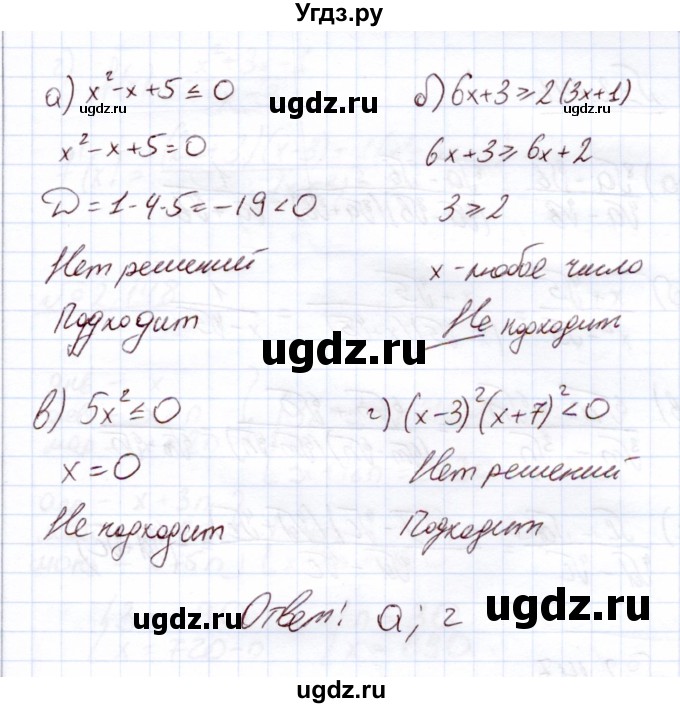 Угдз.ру
а) x² - x + 5 ≤ 0
x² - x + 5 = 0
D = 1 - 4·5 = -19 < 0
Нет решений
Подходит
б) 6x + 3 ≥ 2(3x + 1)
6x + 3 ≥ 6x + 2
3 ≥ 2
x - любое число
Не подходит
в) 5x² ≤ 0
x = 0
Не подходит
г) (x - 3)²(x + 7)² < 0
Нет решений
Подходит
Ответ: а; г
ugdz.ru
ugdz.ru
ugdz.ru
ugdz.ru
ugdz.ru
ugdz.ru
ugdz.ru
ugdz.ru
ugdz.ru